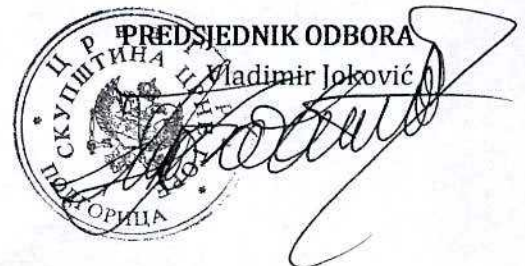 PREDSJEDNIK ODBORA
Vladimir Joković
СКУПШТИНА ЦРНЕ ГОРЕ
ПОДГОРИЦА